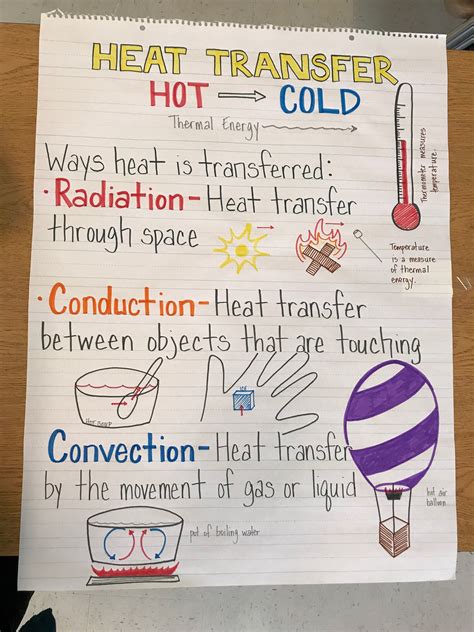 HEAT TRANSFER
HOT → COLD
Thermal Energy →
Thermometer measures
temperature.
Ways heat is transferred:
· Radiation - Heat transfer
through space
Temperature
is a measure
of thermal
energy.
· Conduction - Heat transfer
between objects that are touching
ice
Hot soup
Convection - Heat transfer
by the movement of gas or liquid
hot air
balloon
pot of boiling water